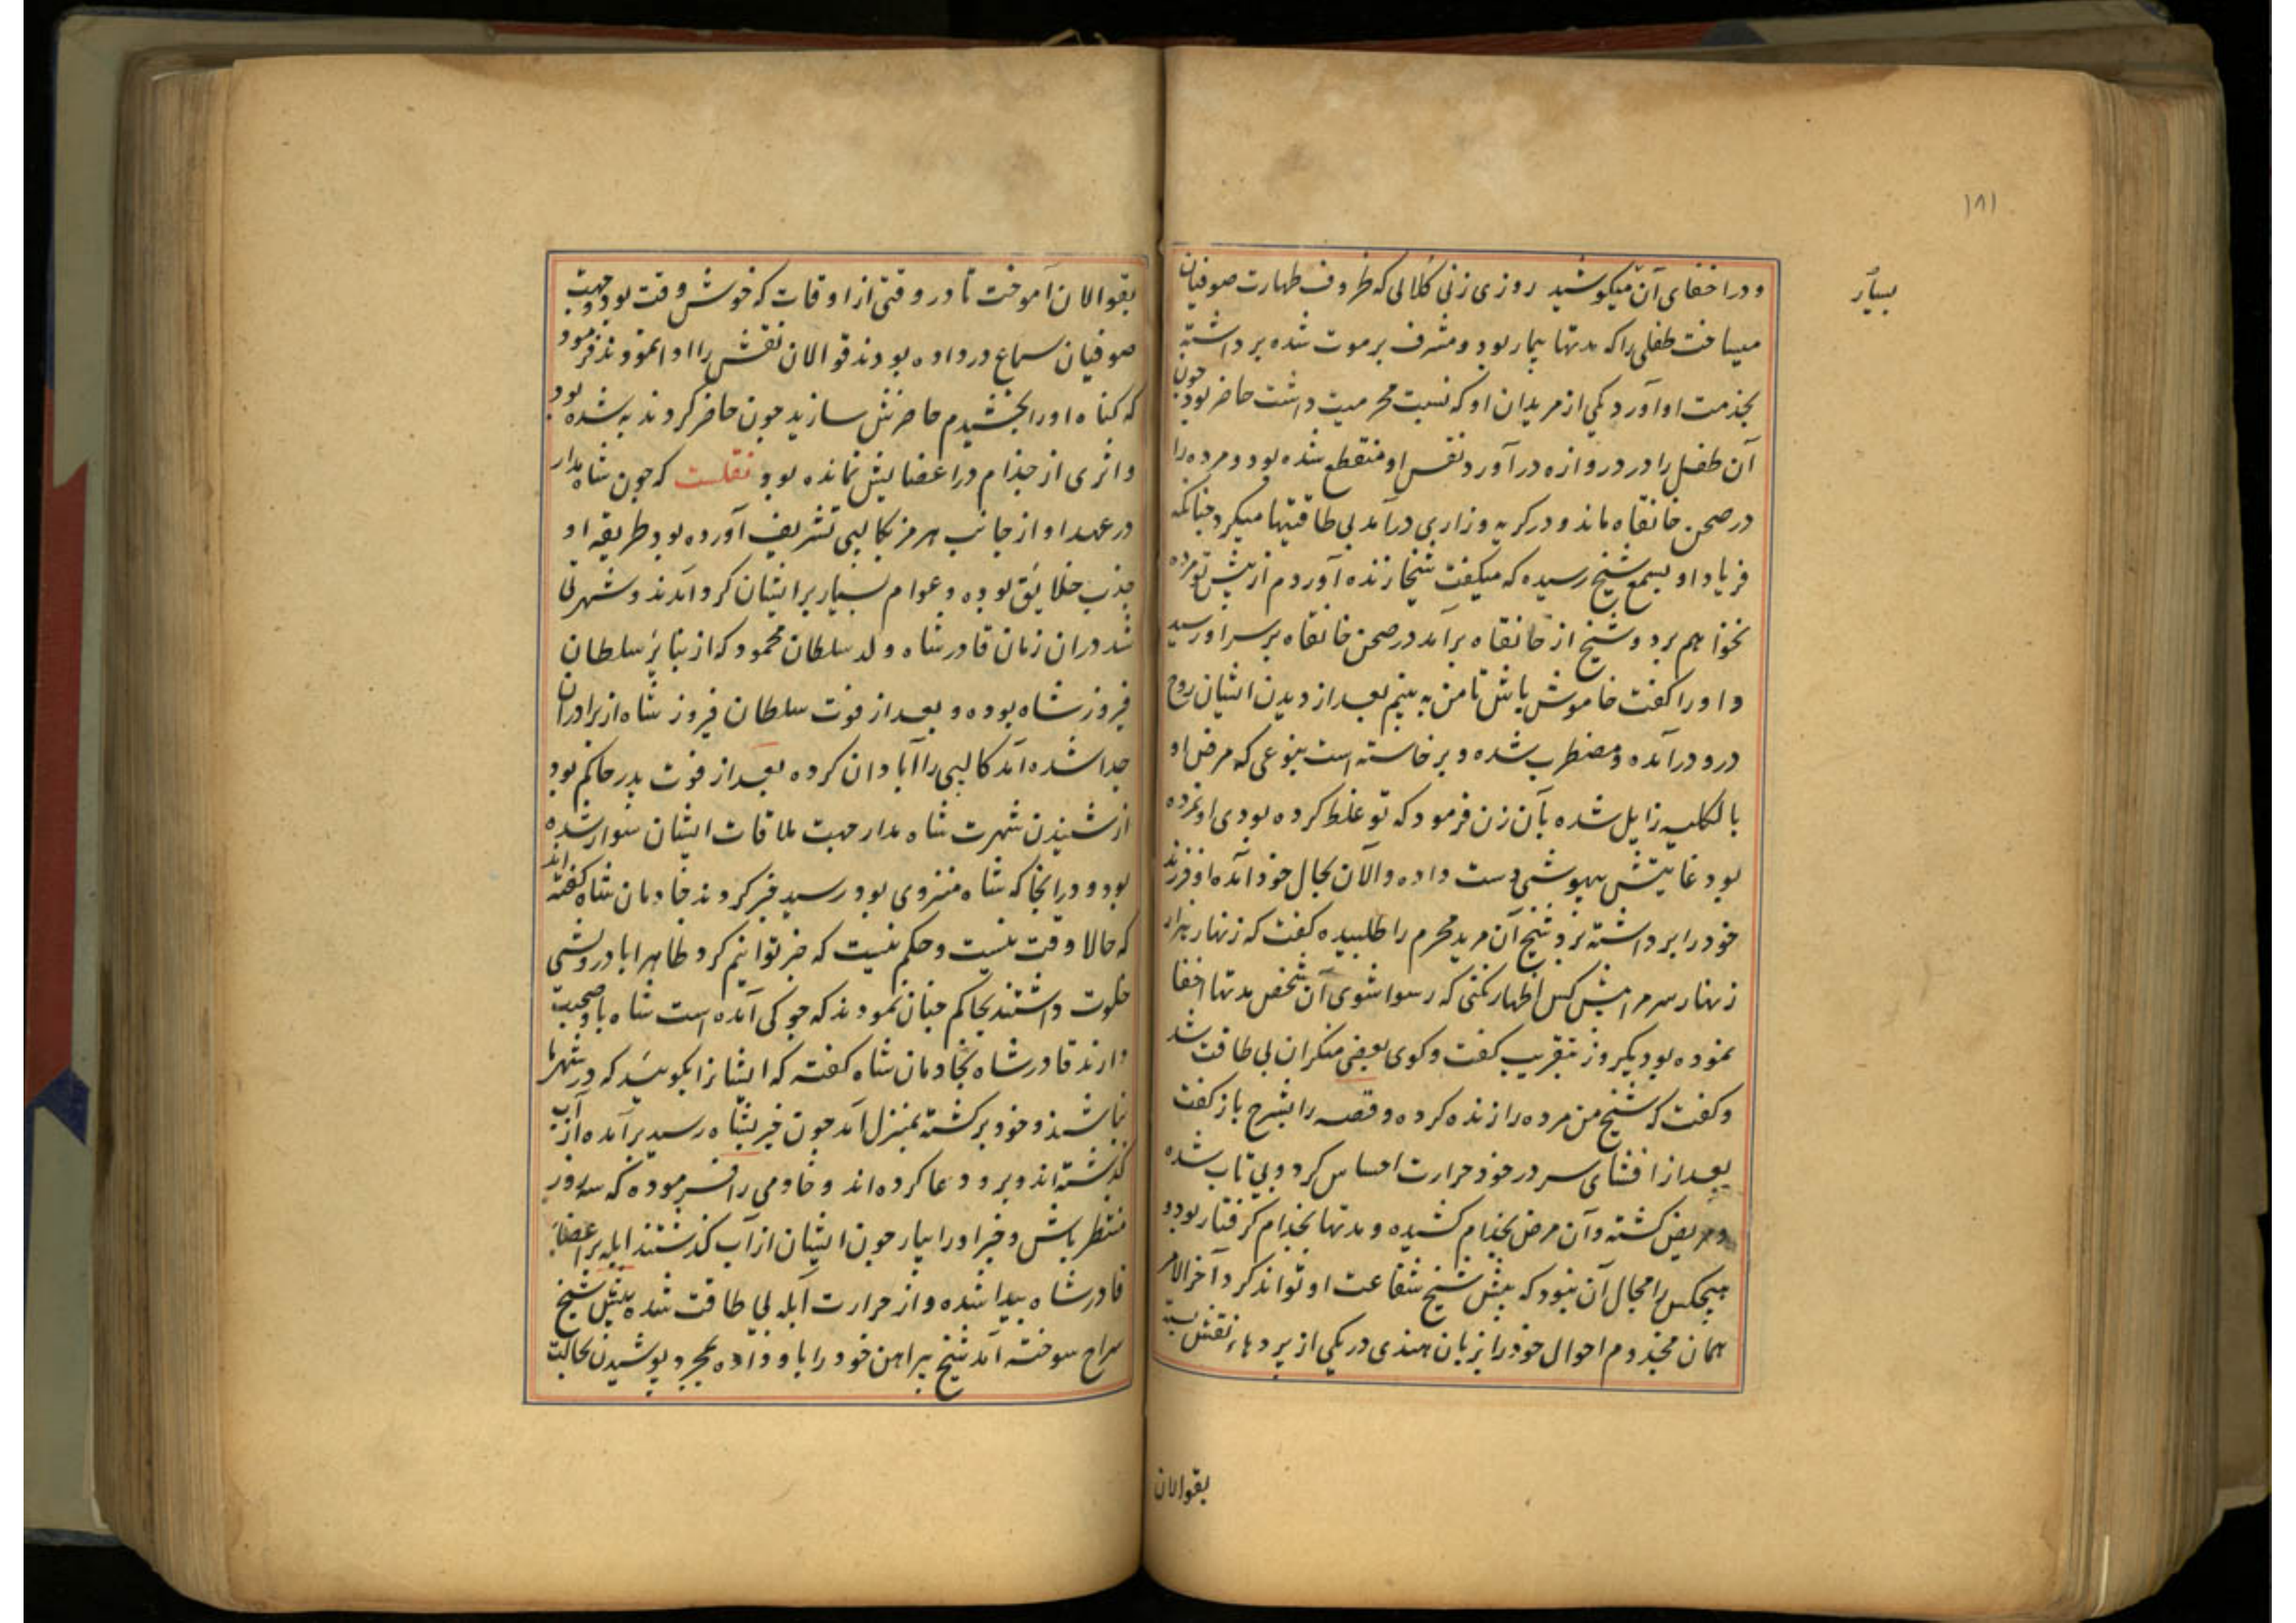 ۱۸۱
بسیار
و در اخفای آن میکوشید روزی زنی کلالی که ظروف طهارت صوفیان
میساخت طفلی را که مدتها بیمار بود و مشرف بر موت شده برداشته
بخدمت او آورد یکی از مریدان او که نسبت محرمیت داشت حاضر بود چون
آن طفل را در دروازه در آورد نفس او منقطع شده بود و مرده را
در صحن خانقاه ماند و در کریه و زاری درآمد بی طاقتیها میکرد چنانکه
فریاد او بسمع شیخ رسیده که میکفت شیخا زنده آوردم از پیش تو مرده
نخواهم برد و شیخ از خانقاه برآمد در صحن خانقاه بر سر او رسید
و او را کفت خاموش باش تا من به بینم بعد از دیدن ایشان روح
درو درآمده و مضطرب شده و برخاسته است بنوعی که مرض او
بالکلیه زایل شده بآن زن فرمود که تو غلط کرده بودی او نمرده
بود غایتش بیهوشی دست داده و الآن بحال خود آمده او فرزند
خود را برداشته برد شیخ آن مرید محرم را طلبیده کفت که زنهار هزار
زنهار سر مرا پیش کس اظهار نکنی که رسوا شوی آن شخص مدتها اخفا
نموده بود یکروز بتقریب کفت و کوی بعضی منکران بی طاقت شد
و کفت که شیخ من مرده را زنده کرده و قصه را بشرح باز کفت
بعد از افشای سر در خود حرارت احساس کرد و بی تاب شده
و مریض کشته و آن مرض بجذام کشیده و مدتها بجذام کرفتار بود و
هیچکس را مجال آن نبود که پیش شیخ شفاعت او تواند کرد آخر الامر
همان مجذوم احوال خود را بزبان هندی در یکی از پردهاء نقش بسته
بقوالان
بقوالان آموخت تا در وقتی از اوقات که خوش وقت بود و جهت
صوفیان سماع در داده بودند قوالان نقش را ادا نمودند فرمود
که کناه او را بخشیدم حاضرش سازید چون حاضر کردند به شده بود
و اثری از جذام در اعضایش نمانده بود نقلست که چون شاه مدار
در عهد او از جانب هرمز بکالپی تشریف آورده بود طریقه او
جذب خلایق بوده و عوام بسیار بر ایشان کرد آمدند و شهرتی
شد دران زمان قادر شاه ولد سلطان محمود که از بنایر سلطان
فیروز شاه بوده و بعد از فوت سلطان فیروز شاه از برادران
جدا شده آمد کالپی را آبادان کرده بعد از فوت پدر حاکم بود
از شنیدن شهرت شاه مدار جهت ملاقات ایشان سوار شده
بود و در آنجا که شاه منزوی بود رسید خبر کردند خادمان شاه کفته اند
که حالا وقت نیست و حکم نیست که خبر توانیم کرد ظاهرا با درویشی
خلوت داشتند بحاکم چنان نمودند که جوکی آمده است شاه باو صحبت
دارند قادر شاه بخادمان شاه کفته که ایشانرا بکویید که در شهر ما
نباشند و خود برکشته بمنزل آمد چون خبر بشاه رسید برآمده از آب
کذشته اند و برو دعا کرده اند و خادمی را فرموده که سه روز
منتظر باش و خبر او را بیار چون ایشان از آب کذشتند آبله بر اعضاء
قادر شاه پیدا شده و از حرارت آبله بی طاقت شده پیش شیخ
سراج سوخته آمد شیخ پیراهن خود را باو داده بمجرد پوشیدن بحالت